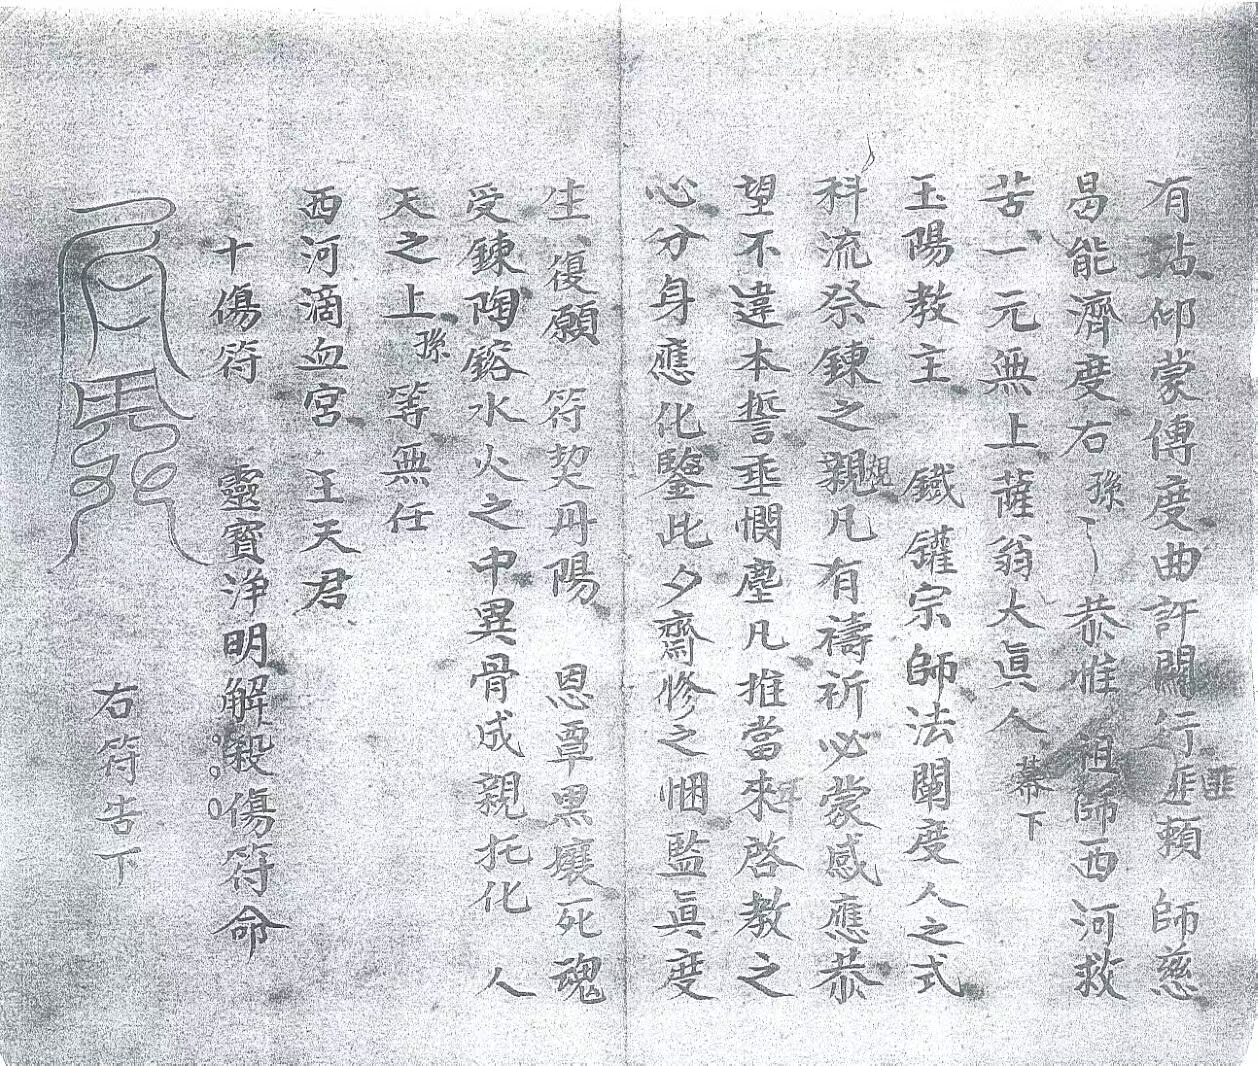 有玷仰蒙傳度曲許闡行匪賴　師慈
曷能濟度右孫〻恭惟　祖師西河救
苦一元無上薩翁大眞人　幕下
玉陽教主　鐵鑵宗師法闡度人之式
科流祭鍊之親凡有禱祈必蒙感應恭
望不違本誓垂憫塵凡推當來啓教之
心分身應化鑒此夕齋修之悃監眞度
生復願　符契丹陽　恩覃黑壤死魂
受鍊陶鎔水火之中異骨成親托化　人
天之上孫　等無任
西河滴血宮　王天君
十傷符　靈寶淨明解殺傷符命
右符告下